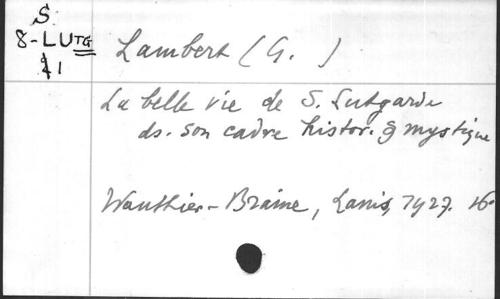 S.
8-LUTG
1
Lambert (G. )
La belle vie de S. Lutgarde
ds. son cadre histor. & mystique
Wauthier-Braine, Lanis, 1927. 16°